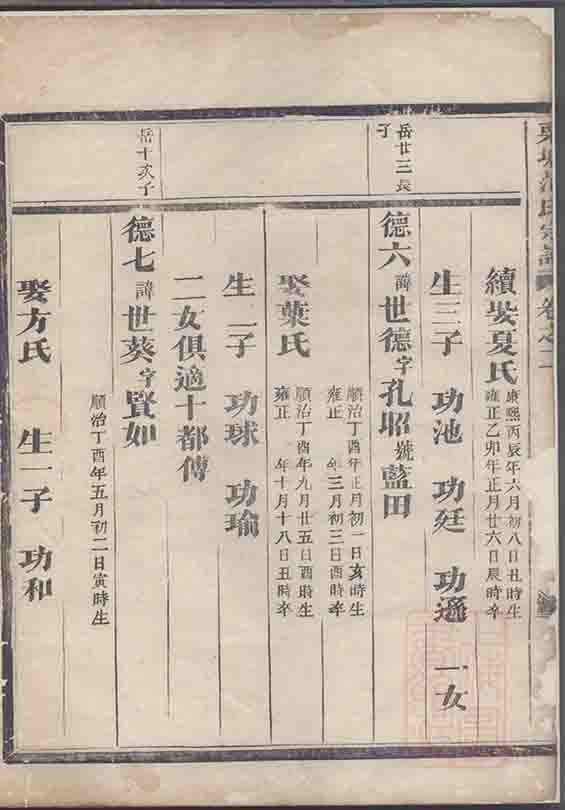 氏宗譜 卷之二
續娶夏氏
康熙丙辰年六月初八日丑時生
雍正乙卯年正月廿六日辰時卒
生三子 功池 功廷 功遜 一女
岳廿三長
子
德六諱世德字孔昭號藍田
順治丁酉年正月初一日亥時生
雍正 年三月初三日酉時卒
娶葉氏
順治丁酉年九月廿五日酉時生
雍正 年十月十八日丑時卒
生二子 功球 功瑜
二女俱適十都傳
岳十次子
德七諱世葵字賢如
順治丁酉年五月初二日寅時生
娶方氏 生一子 功和